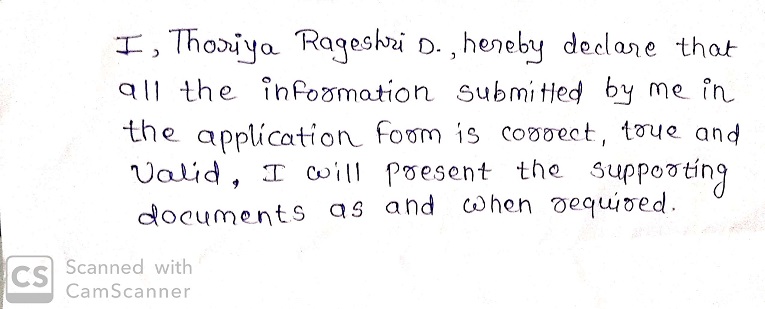 I, Thoriya Rageshri D., hereby declare that
all the information submitted by me in
the application form is correct, true and
Valid, I will present the supporting
documents as and when required.
CS Scanned with
CamScanner